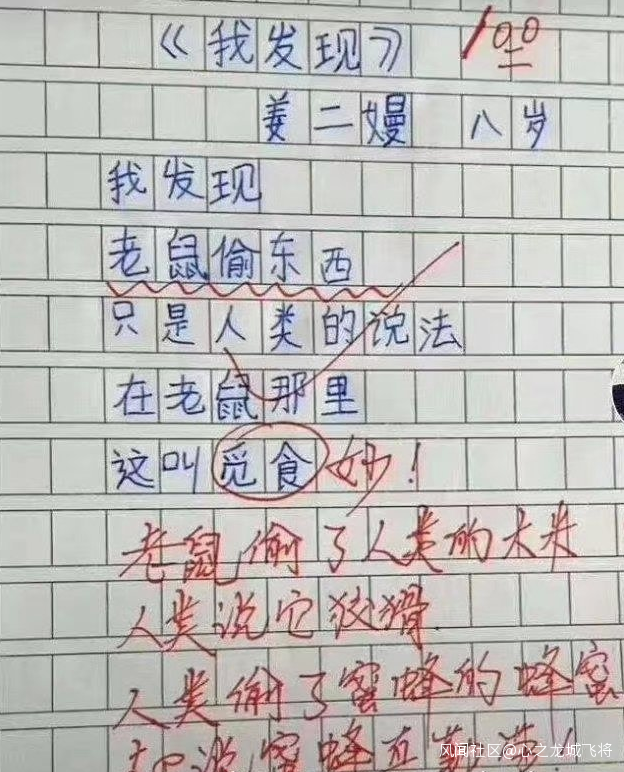 《我发现》 100
姜二嫚 八岁
我发现
老鼠偷东西
只是人类的说法
在老鼠那里
这叫觅食 妙!
老鼠偷了人类的大米
人类说它狡猾.
人类偷了蜜蜂的蜂蜜
说蜜蜂真勤
风闻社区@心之龙城飞将